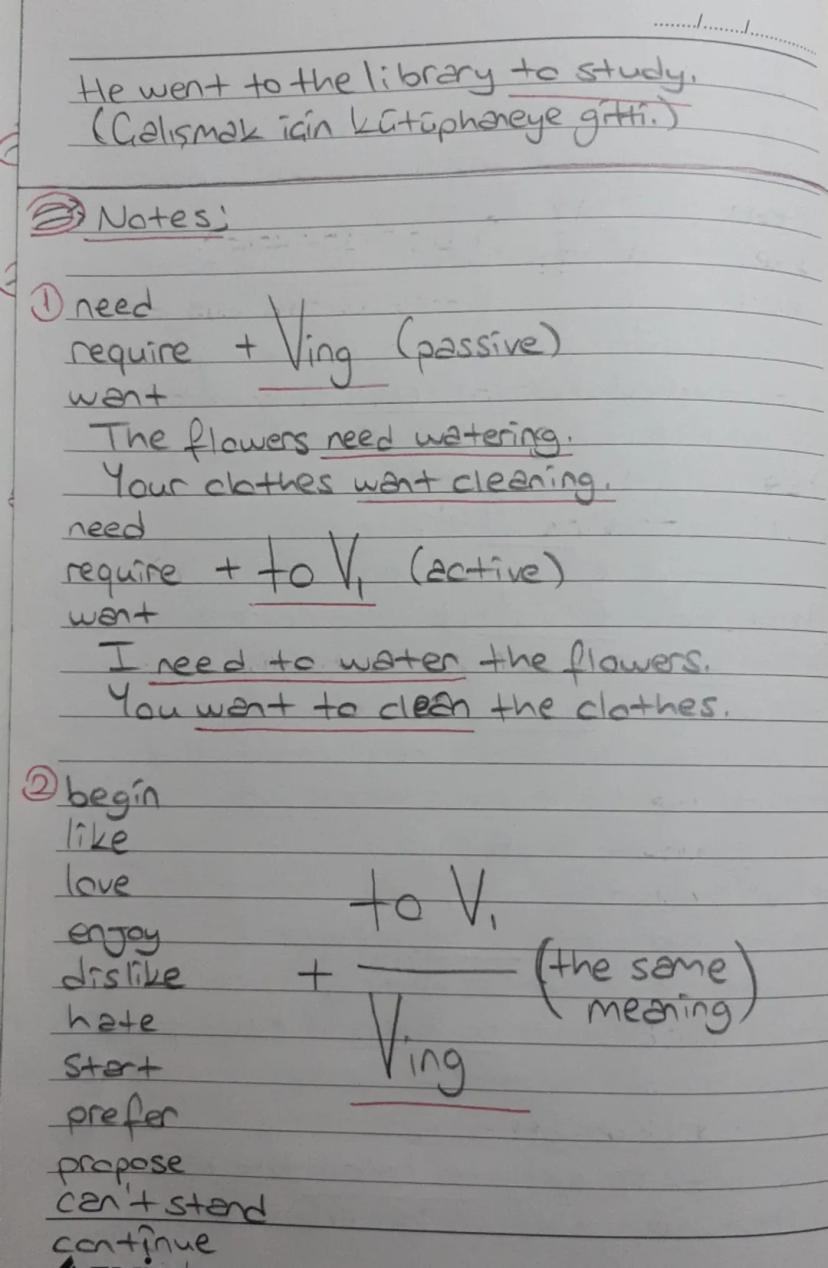 ...../...../.........
He went to the library to study.
(Çalışmak için kütüphaneye gitti.)
Notes:
① need
require + Ving (passive)
want
The flowers need watering.
Your clothes want cleaning.
need
require + to V₁ (active)
want
I need to water the flowers.
You want to clean the clothes.
② begin
like
love
to V₁
enjoy
dislike + (the same
hate meaning)
start Ving
prefer
propose
can't stand
continue